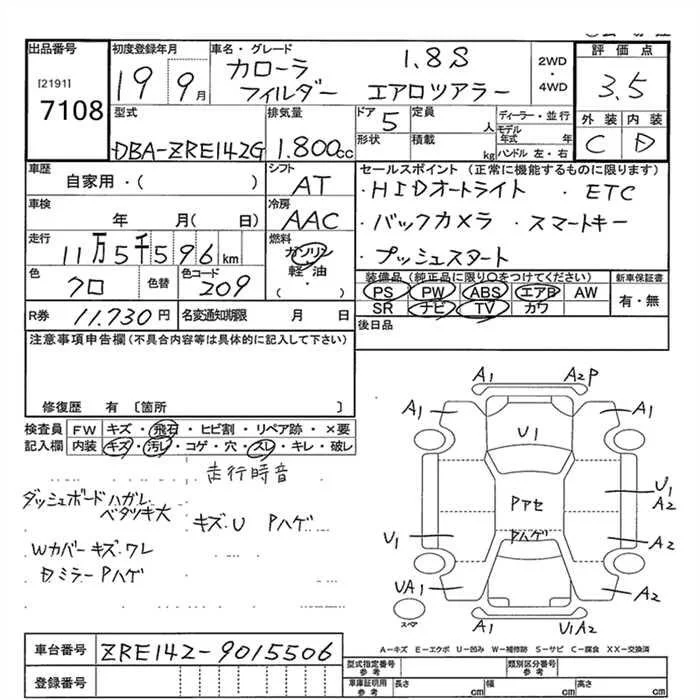 出品番号 初度登録年月 車名・グレード 評価点
[2191] 19 9月 カローラ 1.8S 2WD
7108 フィルダー エアロツアラー ・4WD 3.5
型式 排気量 ドア 5 定員 人 ディーラー・並行 外装 内装
DBA-ZRE142G 1.800cc 形状 積載 kg モデル年式 年 C D
ハンドル 左・右
車歴 シフト セールスポイント(正常に機能するものに限ります)
自家用・( ) AT ・HIDオートライト ・ETC
車検 冷房
年 月(日) AAC ・バックカメラ ・スマートキー
走行 燃料
11万5千596km ガソリン ・プッシュスタート
色 色替 色コード 軽・油 装備品(純正品に限り○をつけてください) 新車保証書
クロ 209 ( ) PS PW ABS エアB AW 有・無
R券 11.730円 名変通知期限 月 日 SR ナビ TV カワ
注意事項申告欄(不具合内容等は具体的に記入して下さい) 後日品
修復歴 有 〔箇所 〕
検査員 FW キズ・飛石・ヒビ割・リペア跡・×要
記入欄 内装 キズ・汚レ・コゲ・穴・スレ・キレ・破レ
走行時音
ダッシュボードハガレ
ベタツキ大 キズ・U Pハゲ
Wカバーキズ・ワレ
Dミラー Pハゲ
A1 A2P
A1 A1
U1
U1
A2
Pアセ
U1 Pハゲ A2
UA1 A2
スペア U1A2
A-キズ E-エクボ U-凹み W-補修跡 S-サビ C-腐食 XX-交換済
車台番号 ZRE142-9015506
型式指定番号 参考 類別区分番号 参考
登録番号 車庫証明用 参考 長さ cm 幅 cm 高さ cm